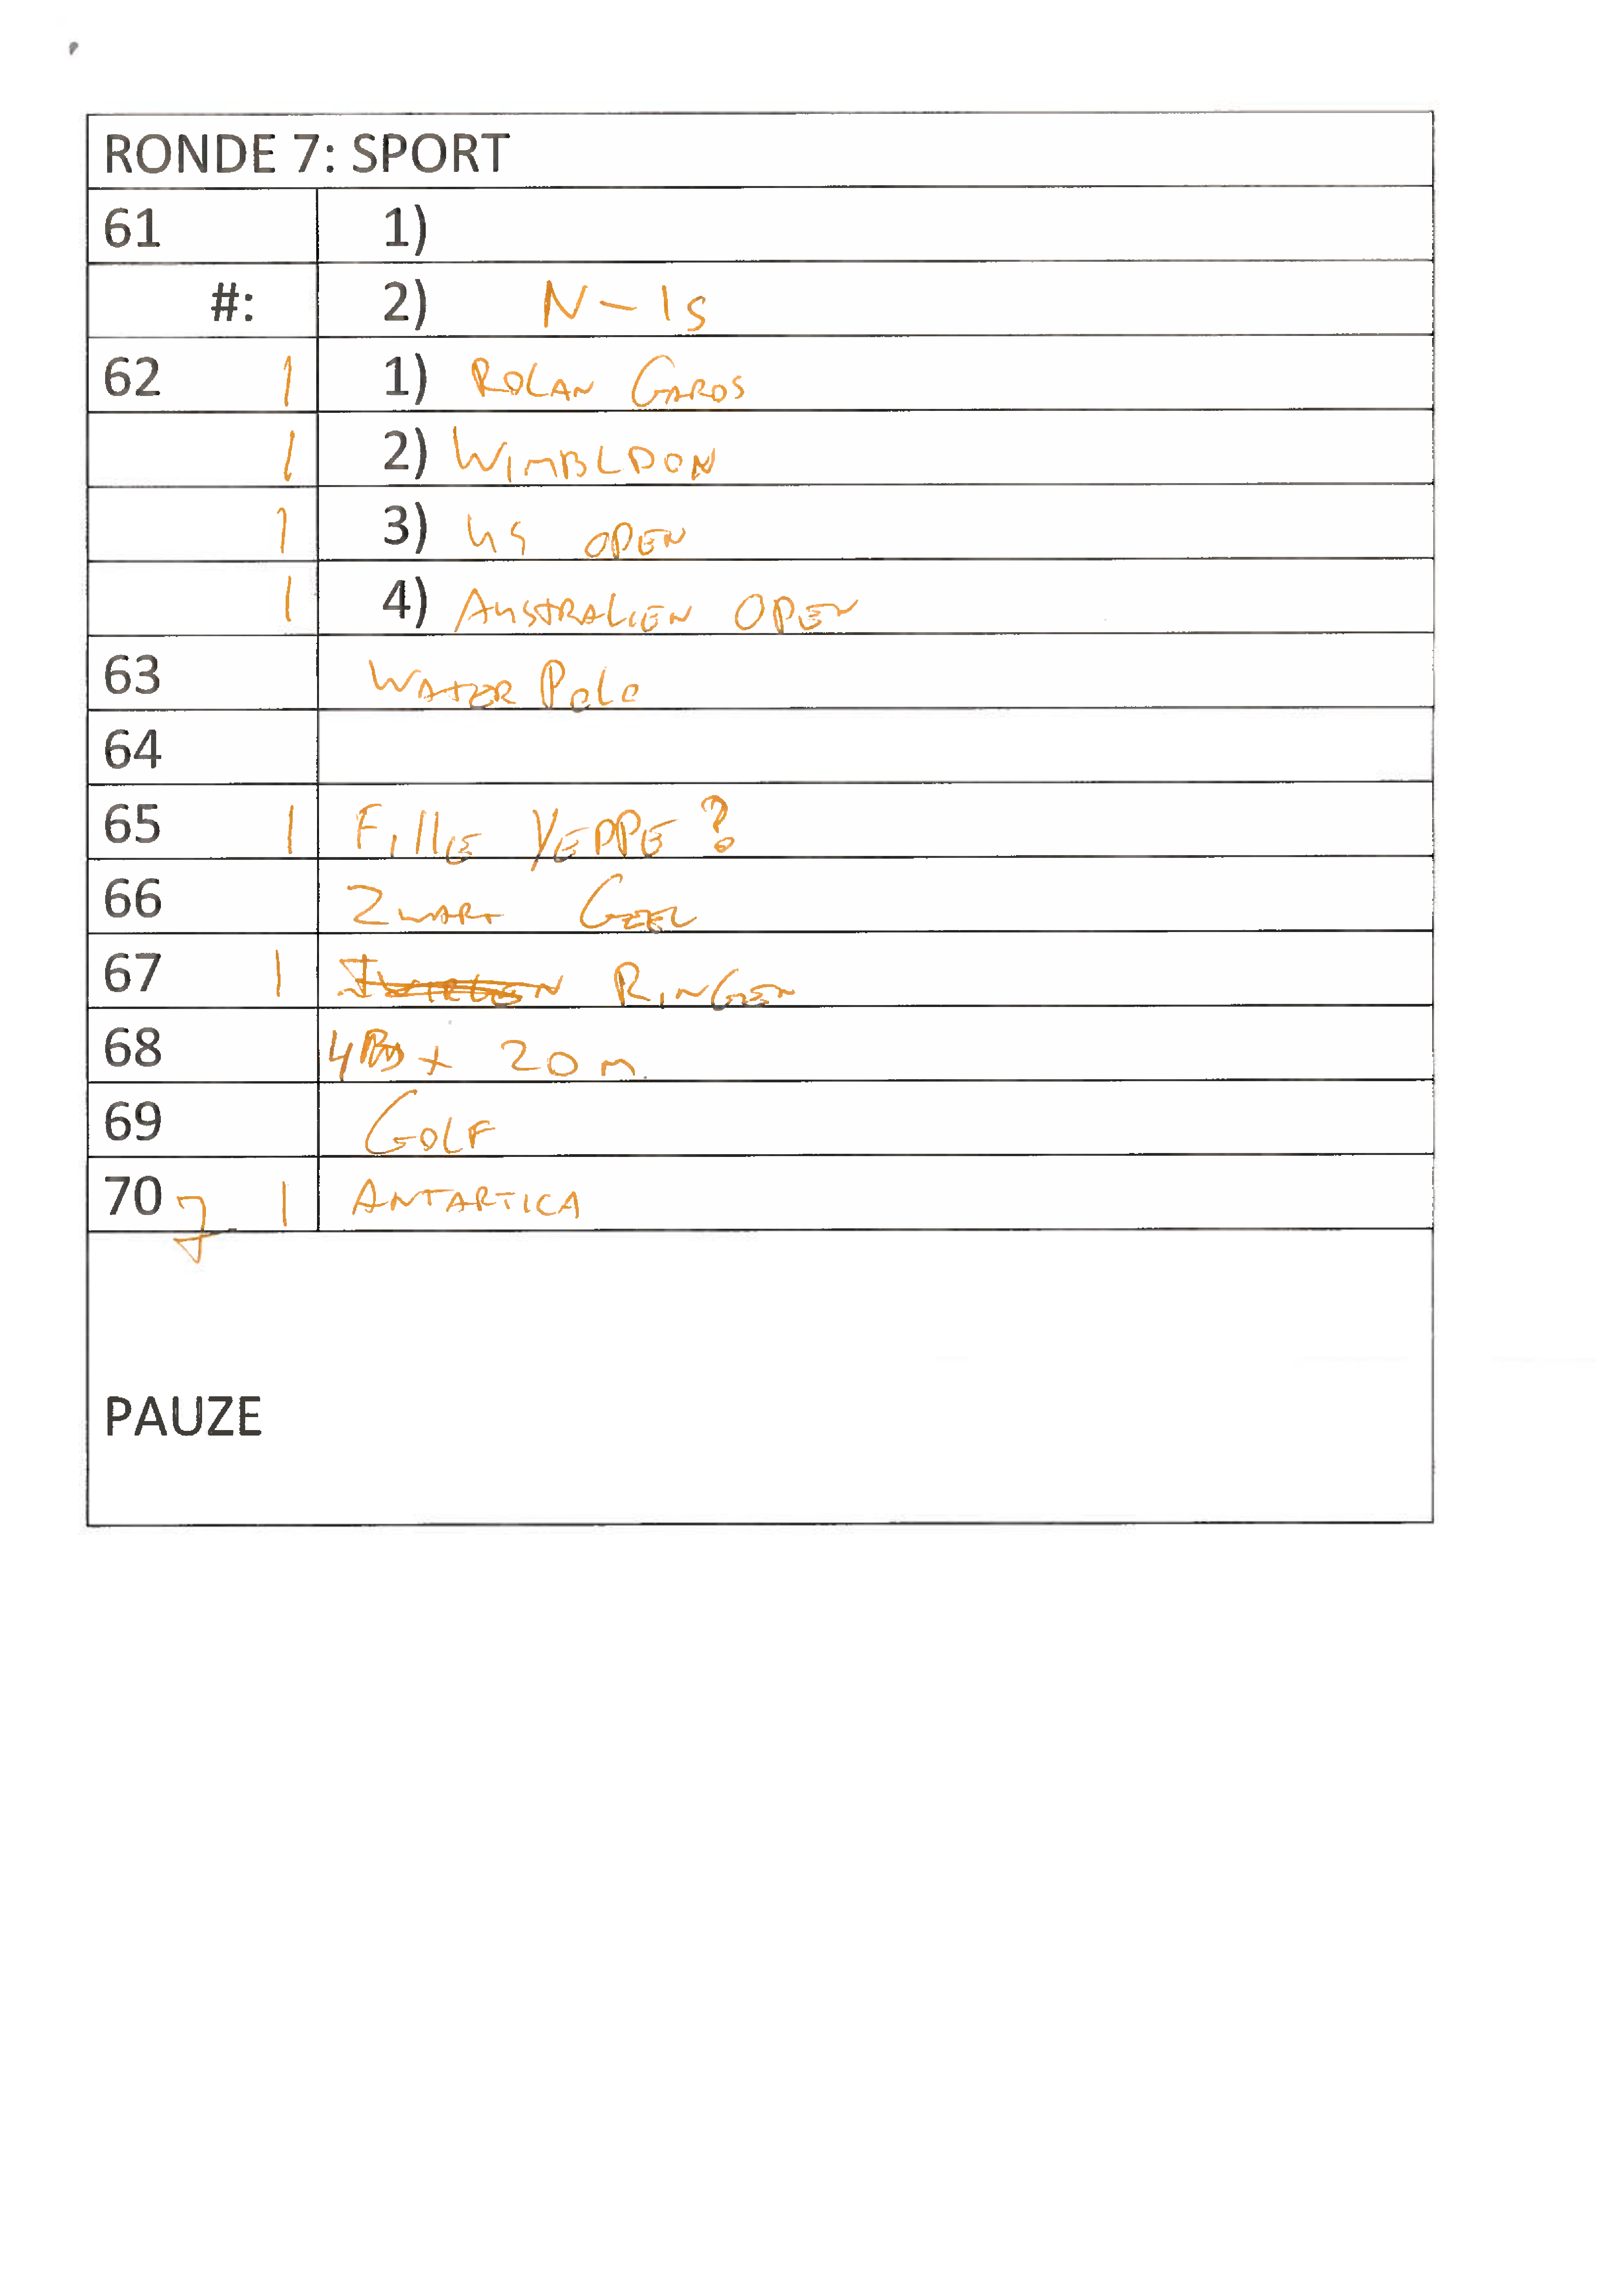 RONDE 7: SPORT
61 1)
#: 2) N-1s
62 1 1) ROLAN GAROS
1 2) WIMBLDON
1 3) US OPEN
1 4) AUSTRALIEN OPEN
63 WATER POLO
64
65 1 FILLE YEPPE?
66 ZWART GEEL
67 1 RINGEN
68 + 20 m.
69 GOLF
70 7 1 ANTARTICA
PAUZE